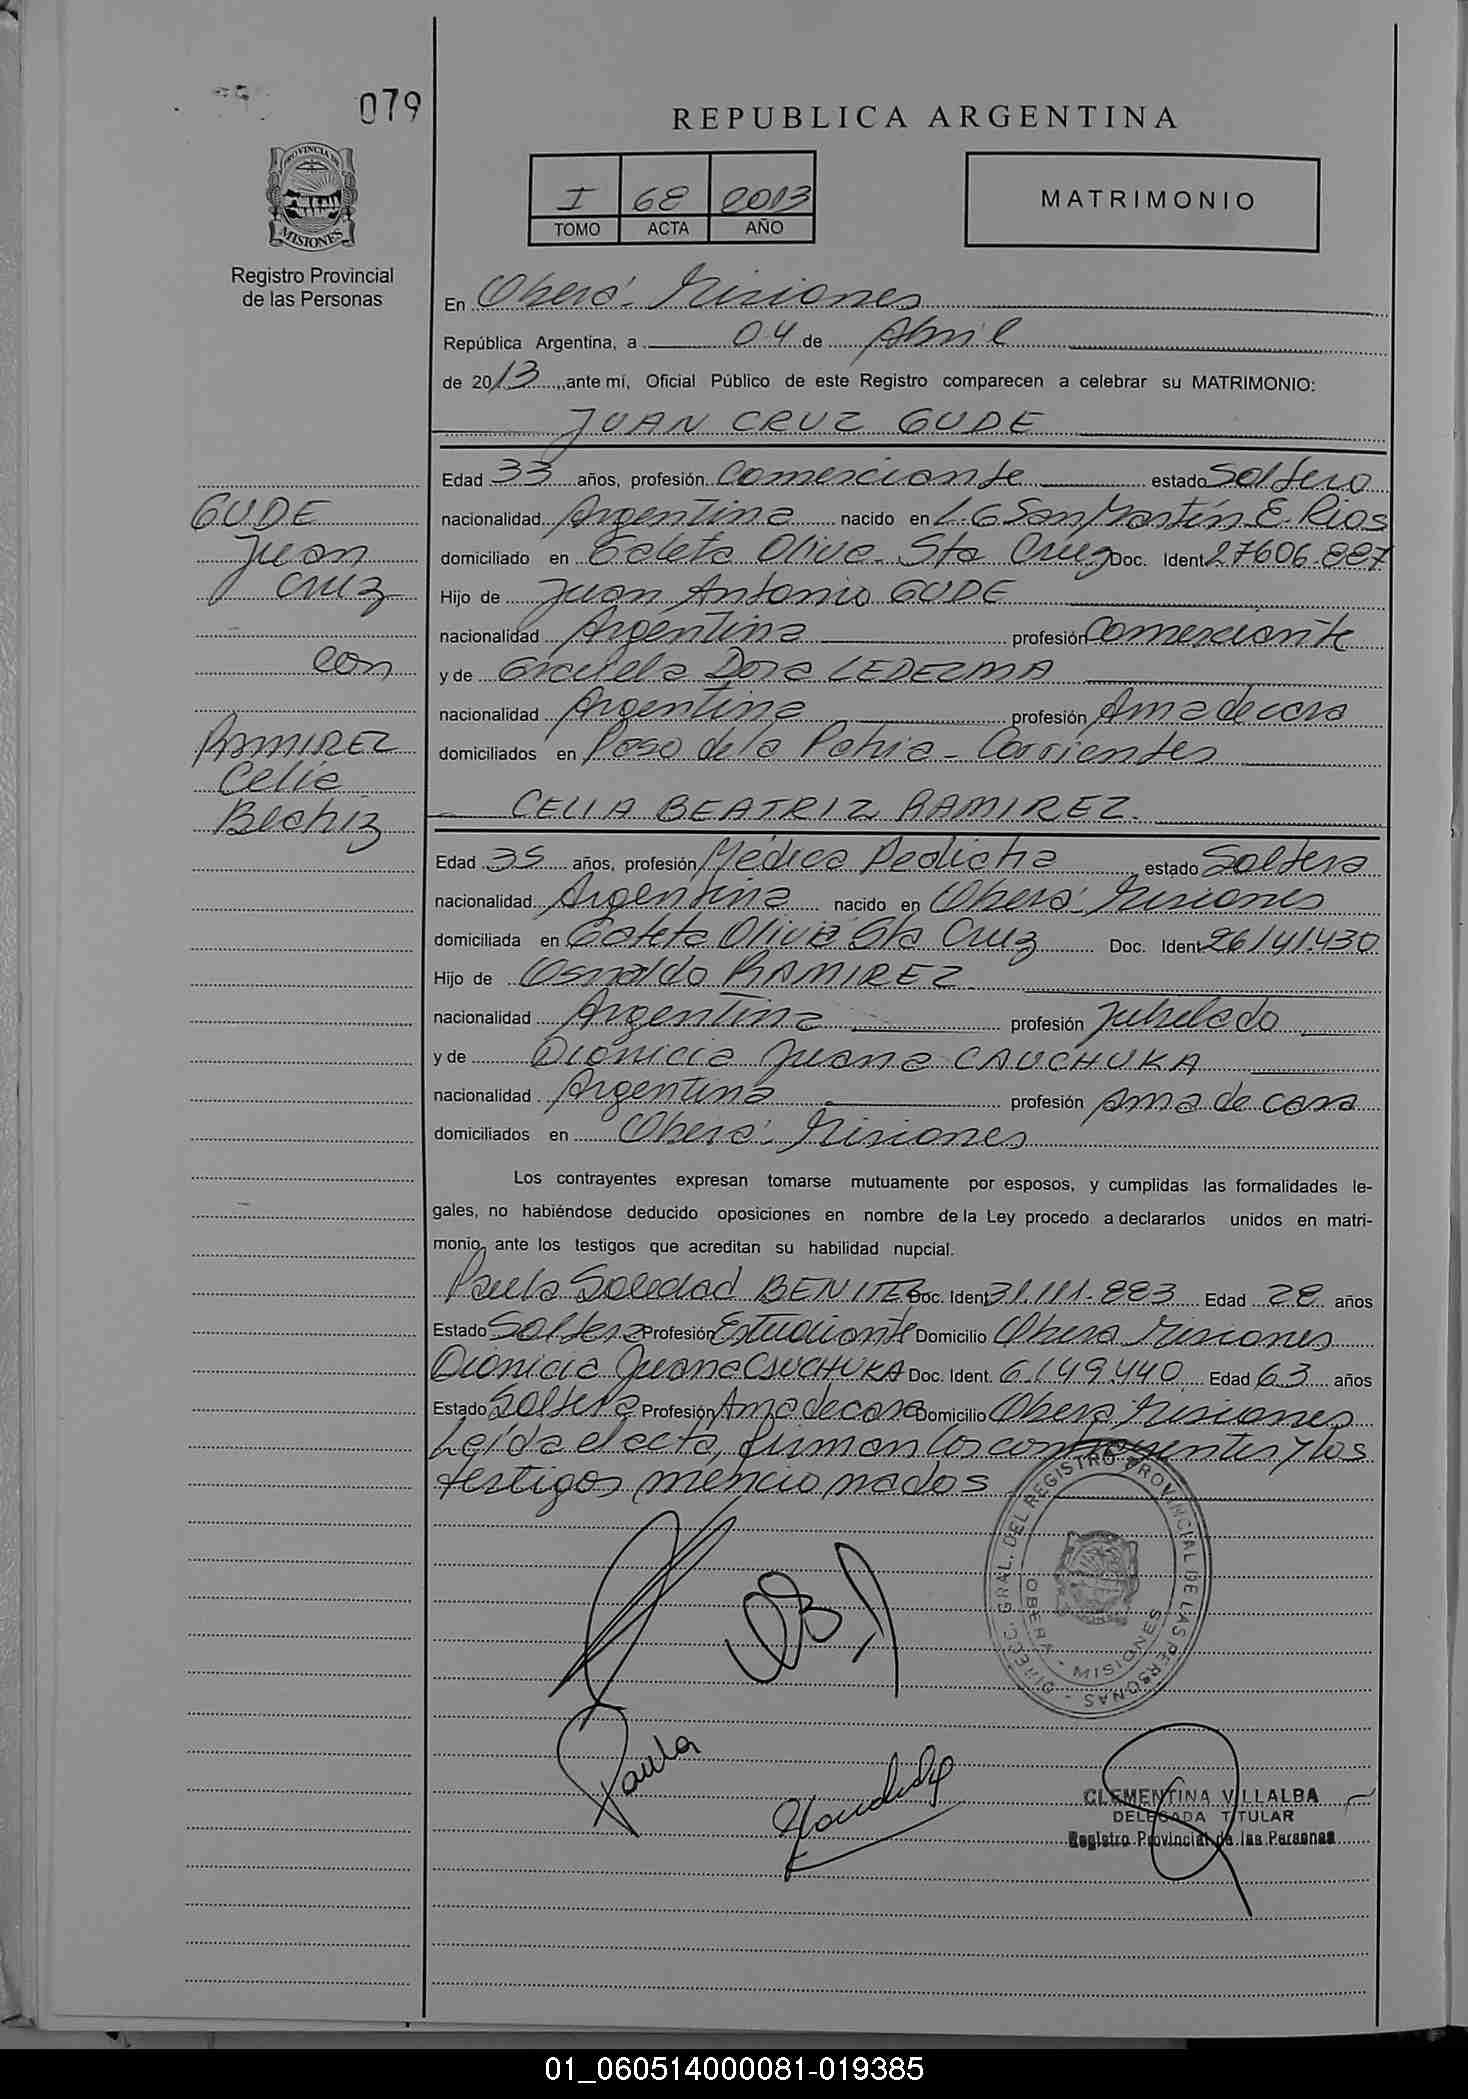 079
PROVINCIA DE
MISIONES
Registro Provincial
de las Personas
REPUBLICA ARGENTINA
I 68 2013
TOMO ACTA AÑO
MATRIMONIO
En Oberá - Misiones
República Argentina, a 04 de Abril
de 2013, ante mí, Oficial Público de este Registro comparecen a celebrar su MATRIMONIO:
JUAN CRUZ GUDE
Edad 33 años, profesión Comerciante estado Soltero
nacionalidad Argentina nacido en L.G San Martín E. Rios
domiciliado en Caleta Olivia - Sta Cruz Doc. Ident. 27606.887
Hijo de Juan Antonio GUDE
nacionalidad Argentina profesión Comerciante
y de Graciela Dora LEDEZMA
nacionalidad Argentina profesión Ama de casa
domiciliados en Paso de la Patria - Corrientes
CELIA BEATRIZ RAMIREZ.
Edad 35 años, profesión Médica Pediatra estado Soltera
nacionalidad Argentina nacido en Oberá - Misiones
domiciliada en Caleta Olivia Sta Cruz Doc. Ident. 26141.430
Hijo de Osvaldo RAMIREZ
nacionalidad Argentina profesión Jubilado
y de Dionicia Juana CAUCHUKA
nacionalidad Argentina profesión Ama de casa
domiciliados en Oberá - Misiones
GUDE
Juan
Cruz
con
RAMIREZ
Celia
Beatriz
Los contrayentes expresan tomarse mutuamente por esposos, y cumplidas las formalidades le-
gales, no habiéndose deducido oposiciones en nombre de la Ley procedo a declararlos unidos en matri-
monio, ante los testigos que acreditan su habilidad nupcial.
Paula Soledad BENITEZ Doc. Ident. 31.111.883 Edad 28 años
Estado Soltera Profesión Estudiante Domicilio Obera Misiones
Dionicia Juana CAUCHUKA Doc. Ident. 6.149.440 Edad 63 años
Estado Soltera Profesión Ama de casa Domicilio Obera Misiones
Leída el acta, firman los contrayentes y los
testigos mencionados
DIRECC. GRAL. DEL REGISTRO PROVINCIAL DE LAS PERSONAS
OBERA - MISIONES
Paula
CLEMENTINA VILLALBA
DELEGADA TITULAR
Registro Provincial de las Personas
01_060514000081-019385